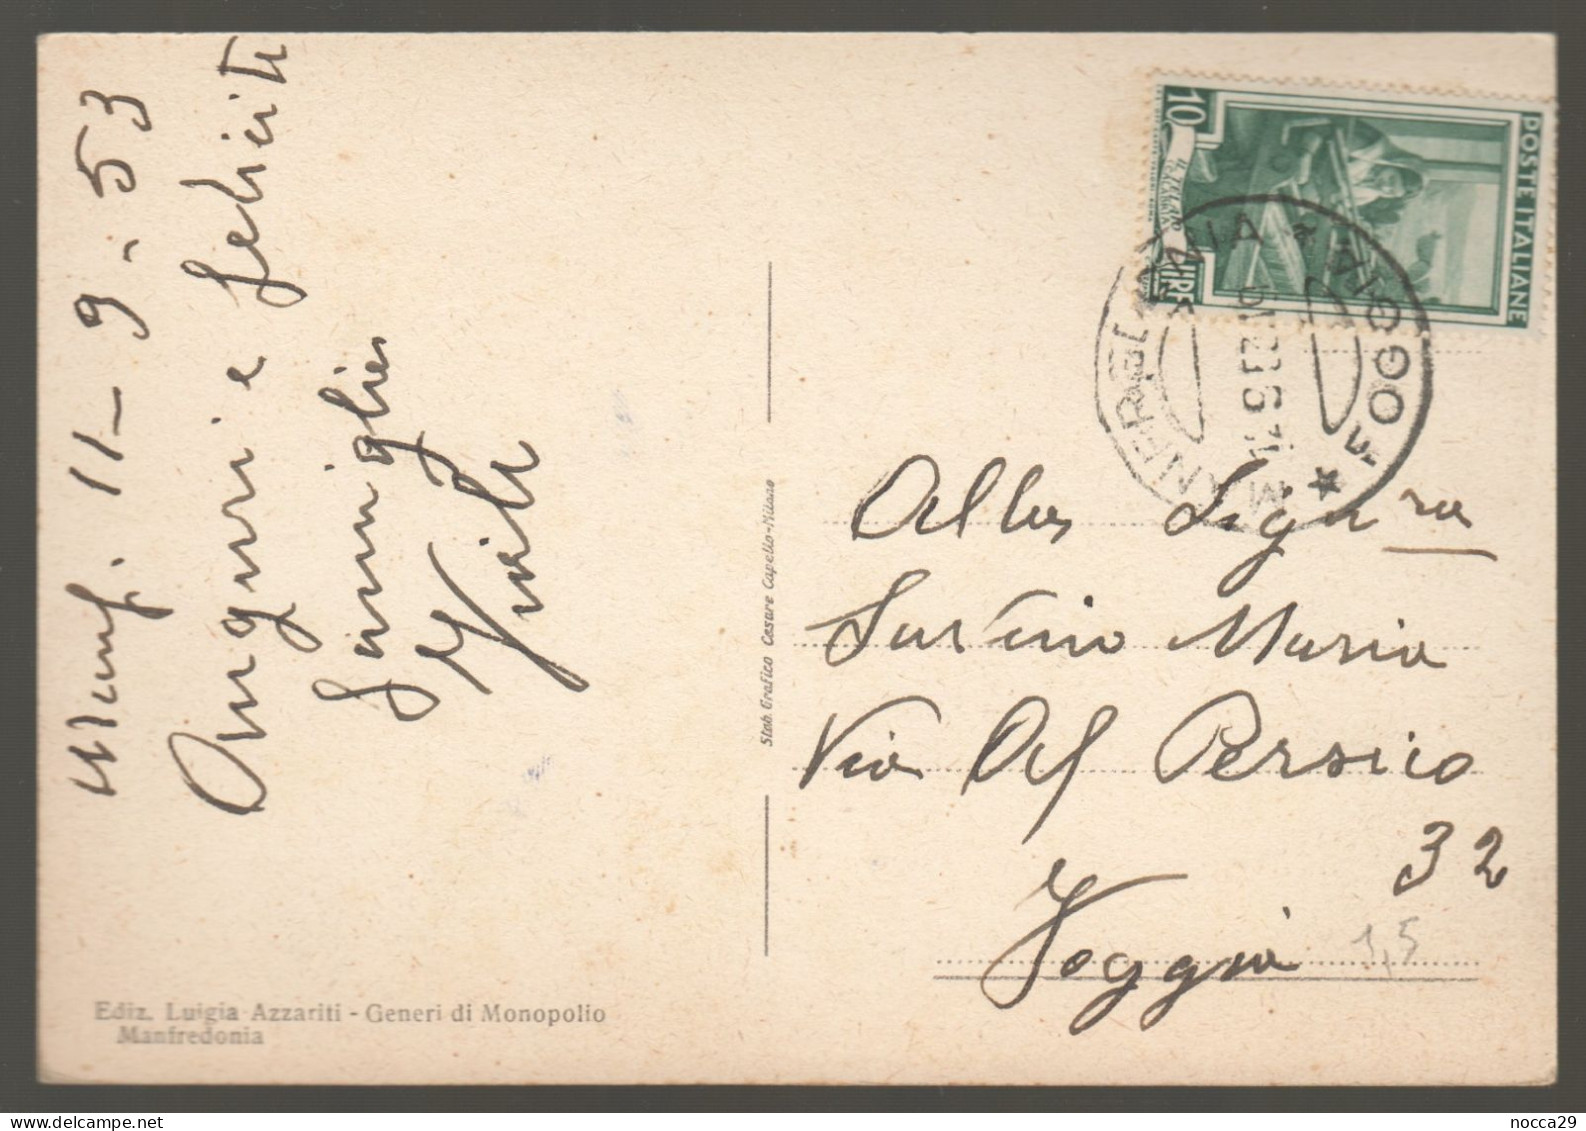 Manf. 11-9-53
Auguri e feliciti
famiglia
Alla Sigra
Maria
Via Al Persico
32
Foggia
1,5
POSTE ITALIANE
10
LIRE
MANFREDONIA * FOGGIA *
Stab. Grafico Cesare Capello-Milano
Ediz. Luigia Azzariti - Generi di Monopolio
Manfredonia
nocca29